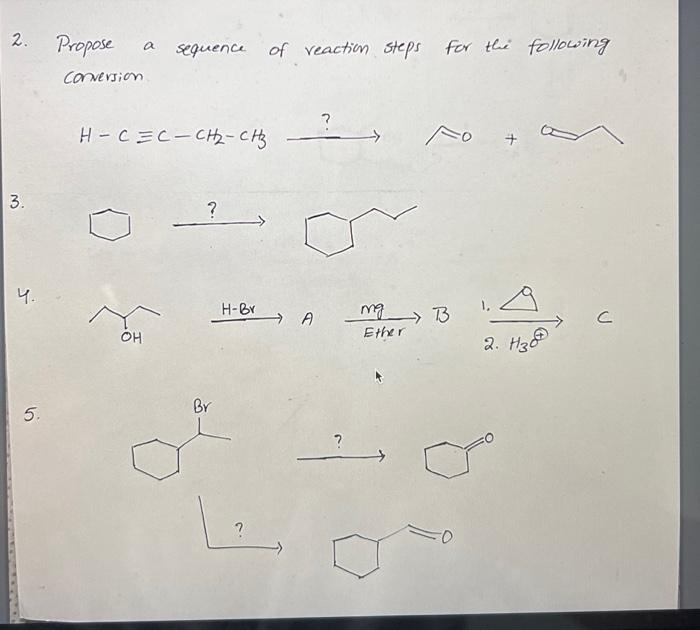 2. Propose a sequence of reaction steps for the following
conversion
H - C ≡ C - CH2 - CH3 ? O + O
3. ?
4. OH H-Br A mg Ether B 1. O 2. H3O⊕ C
5. Br ? O
? O